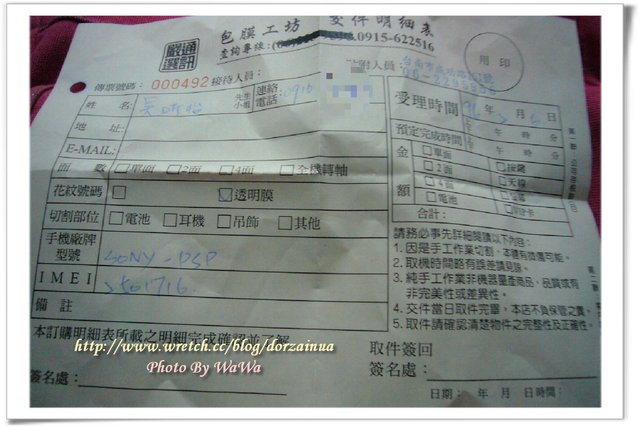 嚴選通訊
包膜工坊 交件明細表
查詢專線: 0915-622516
用印
傳票號碼: 000492 接待人員:
附人員
06-2295856
姓 名: 先生 小姐 連絡電話: 0916
受理時間: 年 月 日
地 址:
預定完成時間: 年 時 分
E-MAIL:
面 數 □單面 □2面 □4面 □全機轉軸
金額 □單面 □2面 □按鍵 □4面 □天線 □電池
花紋號碼 □ □透明膜
合計:
切割部位 □電池 □耳機 □吊飾 □其他
手機廠牌型號 SONY-PSP
IMEI
備 註
請務必事先詳細閱讀以下內容:
1.因是手工作業切割,本體有損傷可能。
2.取機時間略有誤差請見諒。
3.純手工作業非機器量產商品,品質或有
非完美性或差異性。
4.交件當日取件完畢,本店不負保管之責。
5.取件請確認清楚物件之完整性及正確性。
本訂購明細表所載之明細完成確認並了解
取件簽回
簽名處:
簽名處:
日期: 年 月 日 時間:
http://www.wretch.cc/blog/dorzainua
Photo By WaWa